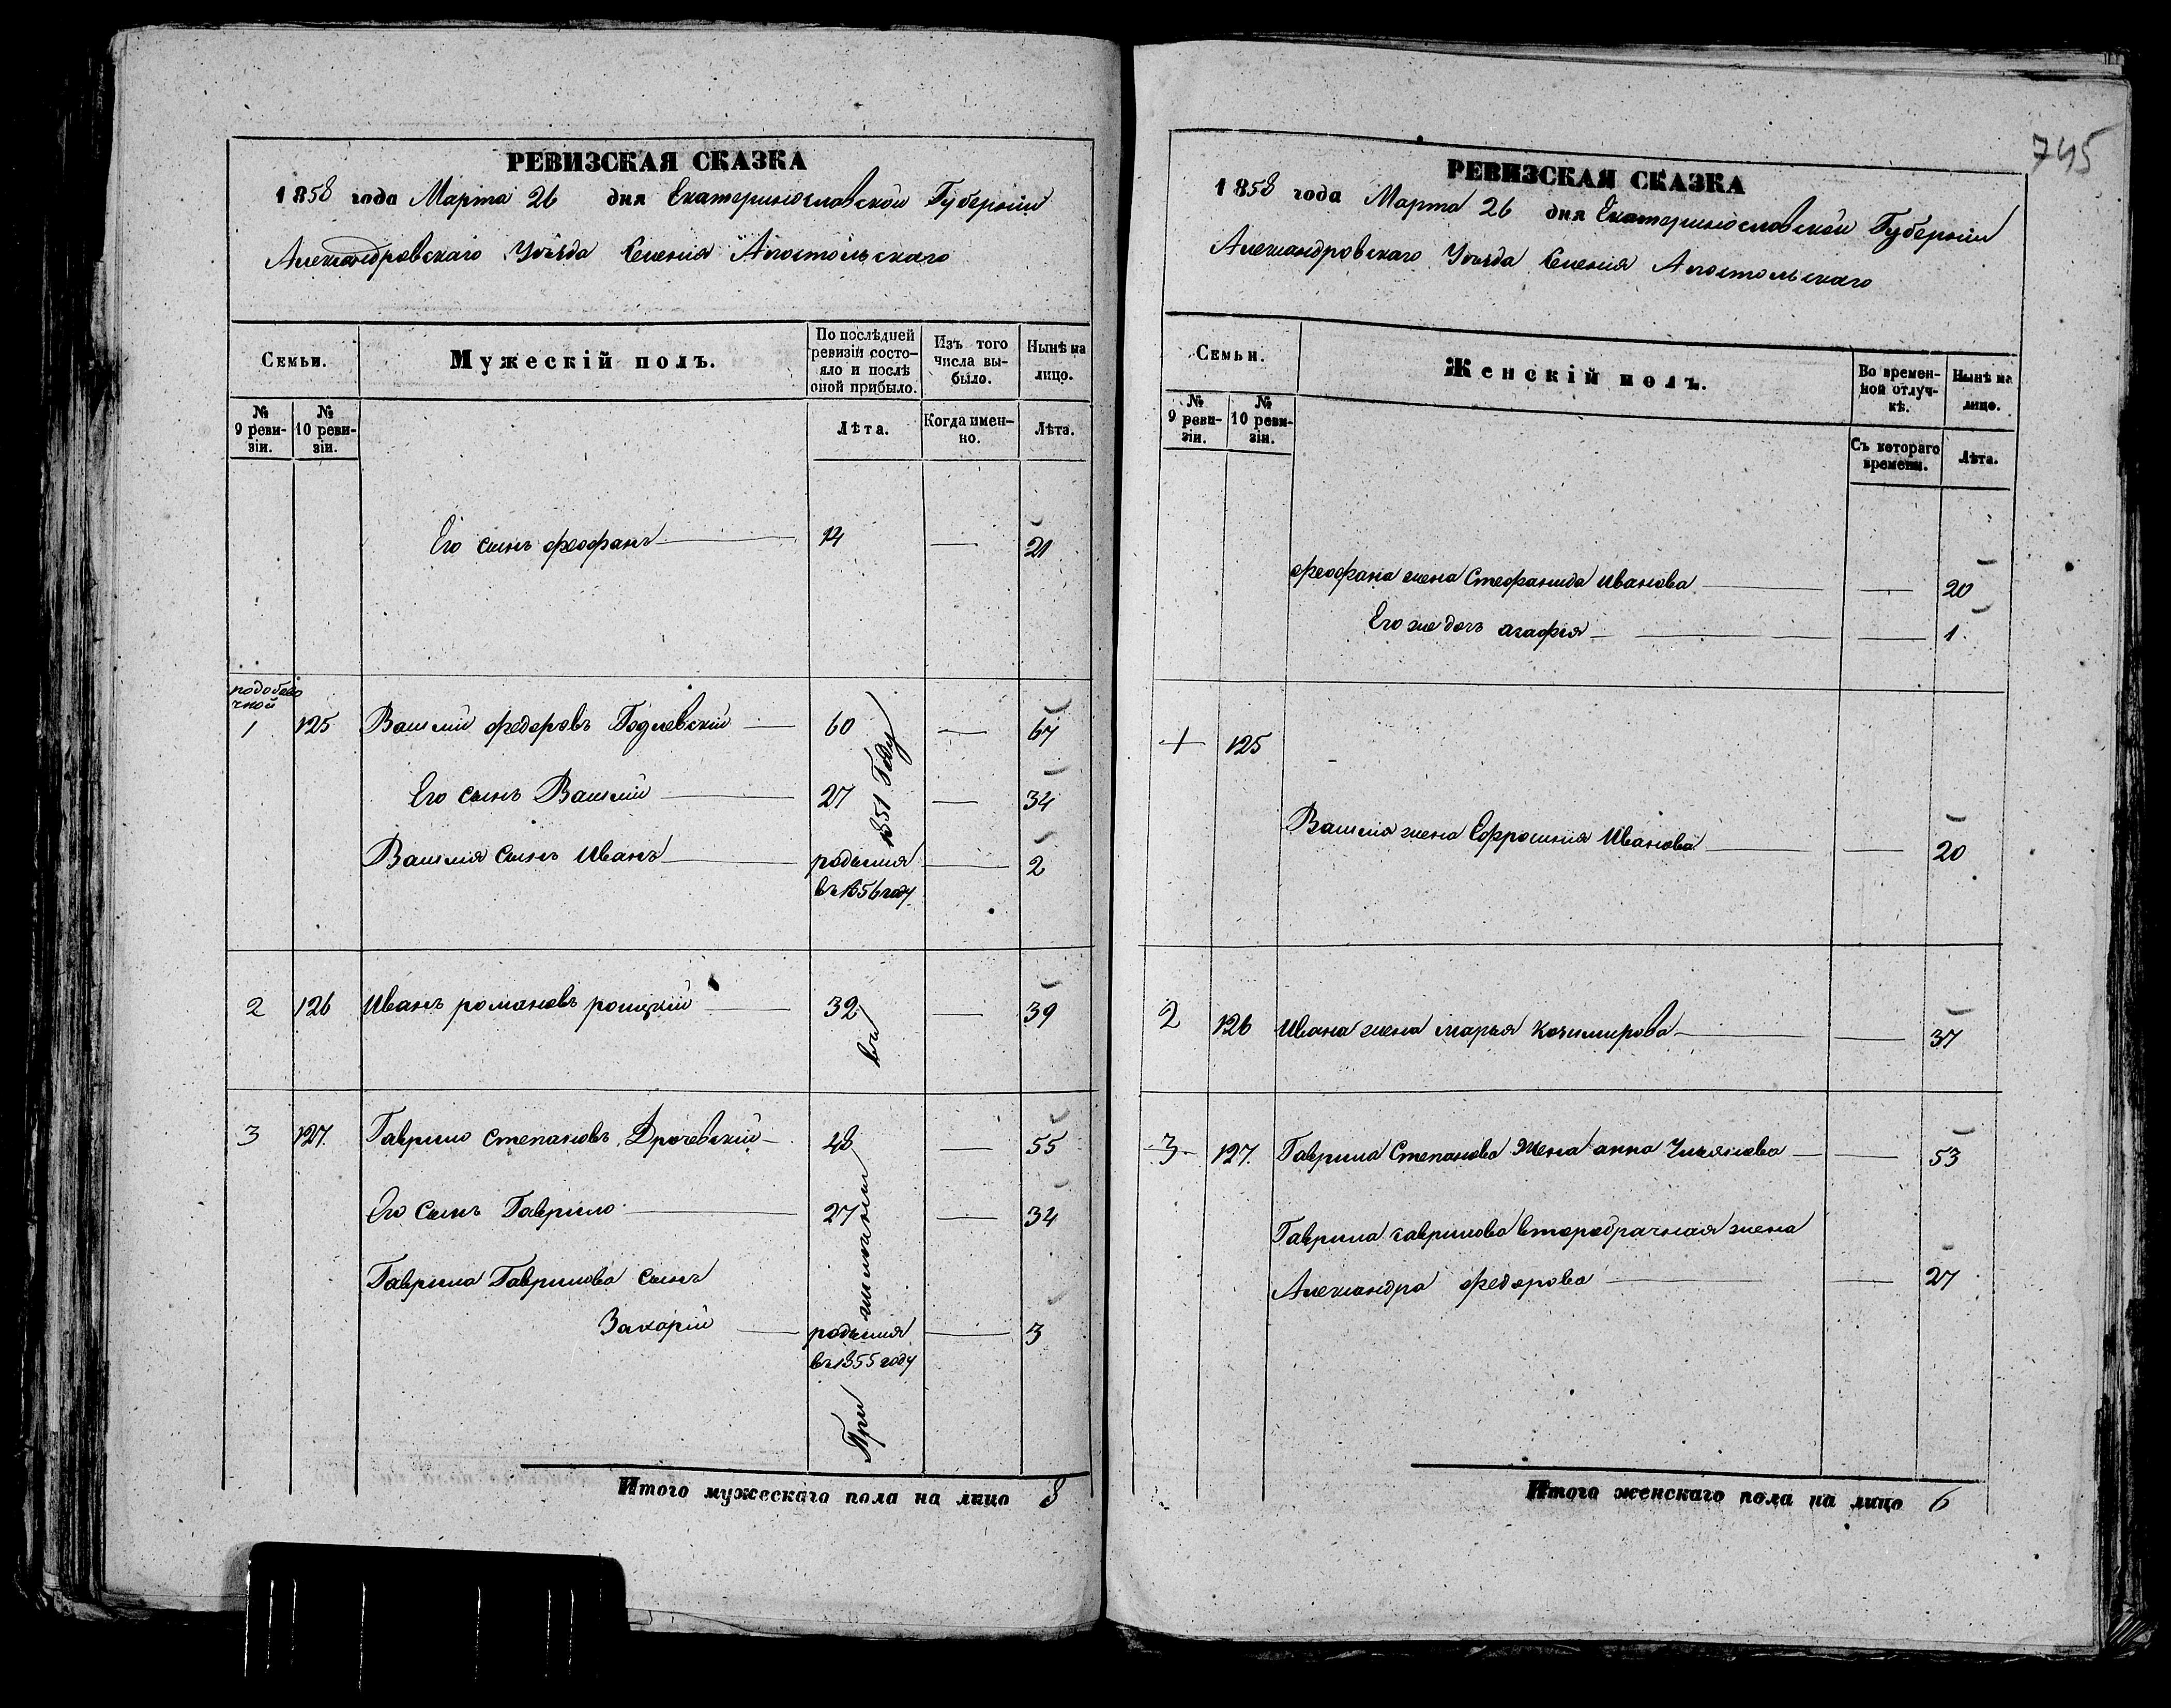 РЕВИЗСКАЯ СКАЗКА
1858 года Марта 26 дня Екатеринославской Губерніи
Александровскаго Уѣзда Селенія Апостольскаго
Семьи.
Мужескій полъ.
По послѣдней ревизіи состояло и послѣ оной прибыло.
Изъ того числа выбыло.
Нынѣ на лицо.
№ 9 ревизіи.
№ 10 ревизіи.
Лѣта.
Когда именно.
Лѣта.
Его сынъ Феофанъ 14 — 21
подобво
чной
1 125 Василій Федоровъ Подлевскій 60 — 67
Его сынъ Василій 27 — 34
Василія сынъ Иванъ родился — 2
въ 1856 году
2 126 Иванъ романовъ рошцкій 32 — 39
3 127. Гаврило Степановъ Дрочевскій 48 — 55
Его сынъ Гаврило 27 — 34
Гаврила Гаврилова сынъ
Захарій родился — 3
въ 1855 году
При въ 1851 Году
Итого мужескаго пола на лицо 8
745
РЕВИЗСКАЯ СКАЗКА
1858 года Марта 26 дня Екатеринославской Губерніи
Александровскаго Уѣзда Селенія Апостольскаго
Семьи.
Женскій полъ.
Во временной отлучкѣ.
Нынѣ на лицо.
№ 9 ревизіи.
№ 10 ревизіи.
Съ котораго времени.
Лѣта.
Феофана жена Стефанида Иванова — 20
Его же дочь агафія — 1
1 125
Василія жена Ефросинія Иванова — 20
2 126 Ивана жена марья Козимирова — 37
3 127. Гаврила Степанова Жена анна Ульянова — 53
Гаврила гаврилова второбрачная жена
Александра Федорова — 27
Итого женскаго пола на лицо 6